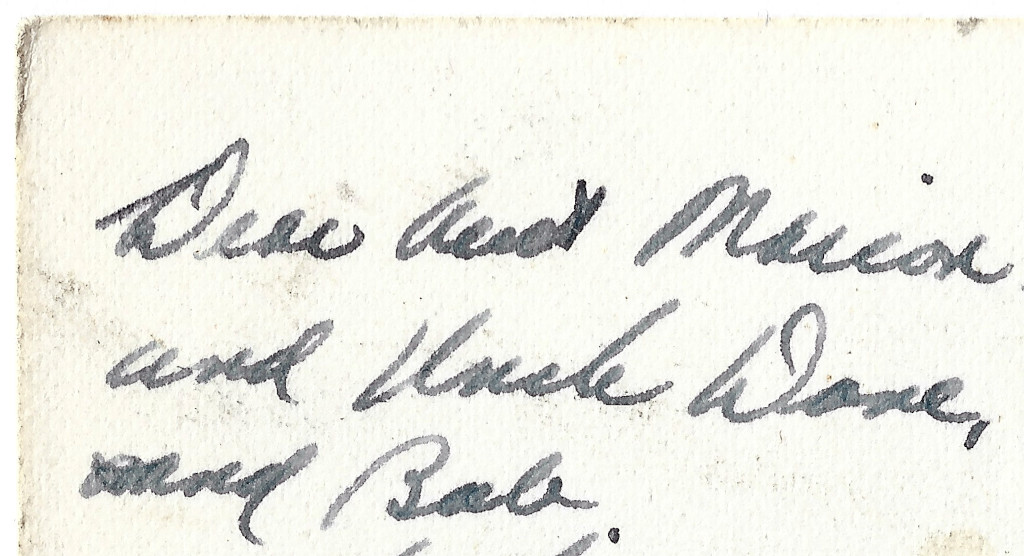 Dear Aunt Marion
and Uncle Dane,
and Bab